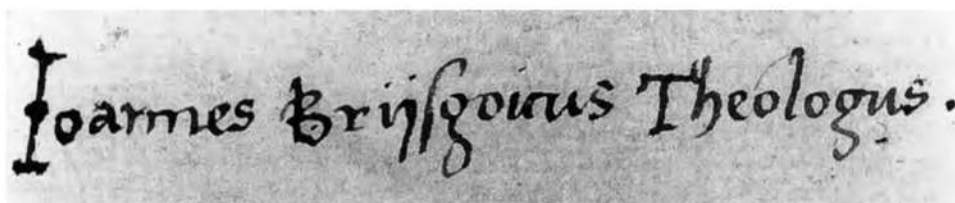 Ioannes Brijsgoicus Theologus.